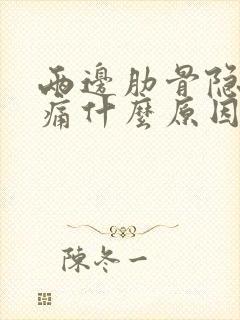 兩邊肋骨隐
痛什麼原因
陳冬一